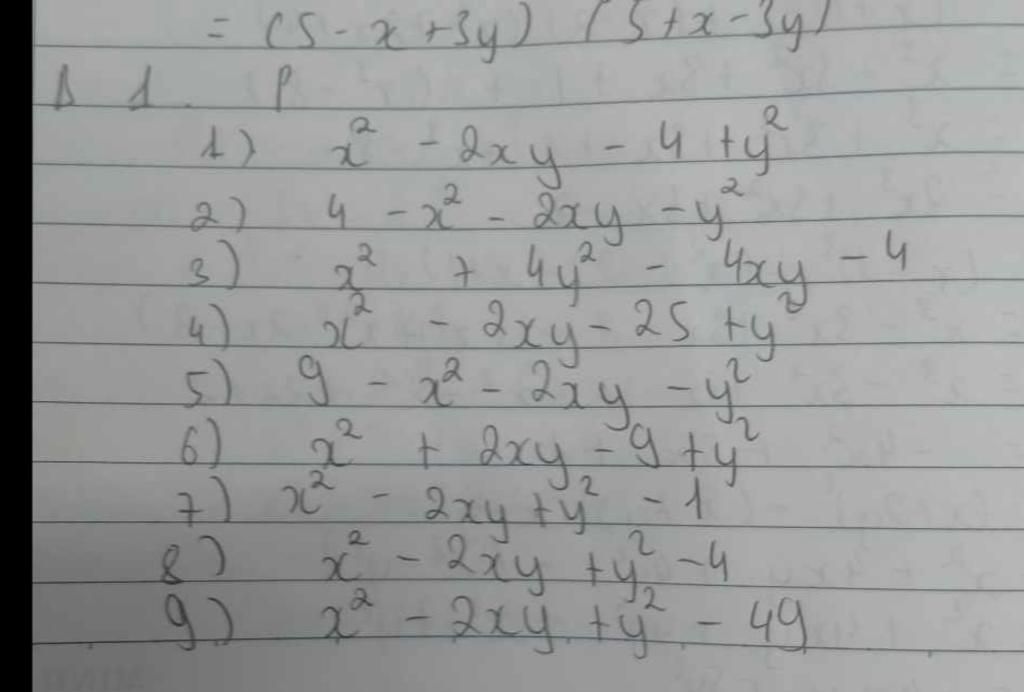 = (5 - x + 3y) (5 + x - 3y)
1) x² - 2xy - 4 + y²
2) 4 - x² - 2xy - y²
3) x² + 4y² - 4xy - 4
4) x² - 2xy - 25 + y²
5) 9 - x² - 2xy - y²
6) x² + 2xy - 9 + y²
7) x² - 2xy + y² - 1
8) x² - 2xy + y² - 4
9) x² - 2xy + y² - 49